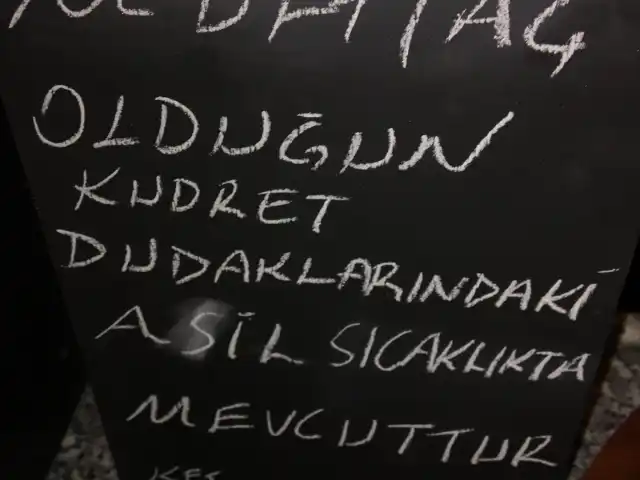 OLDUĞUN
KUDRET
DUDAKLARINDAKİ
ASİL SICAKLIKTA
MEVCUTTUR